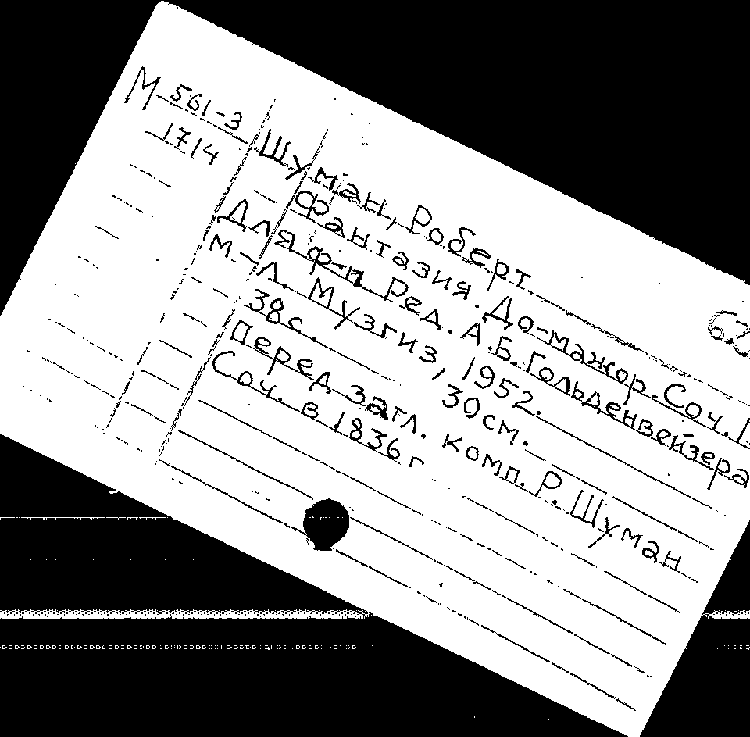 М 561-3
1714
62
Шуман, Роберт.
Фантазия. До-мажор. Соч. 1
Для ф-п Ред. А.Б. Гольденвейзера
М.-Л. Музгиз, 1952.
38с. 30см.
Перед загл. комп. Р. Шуман
Соч. в 1836 г